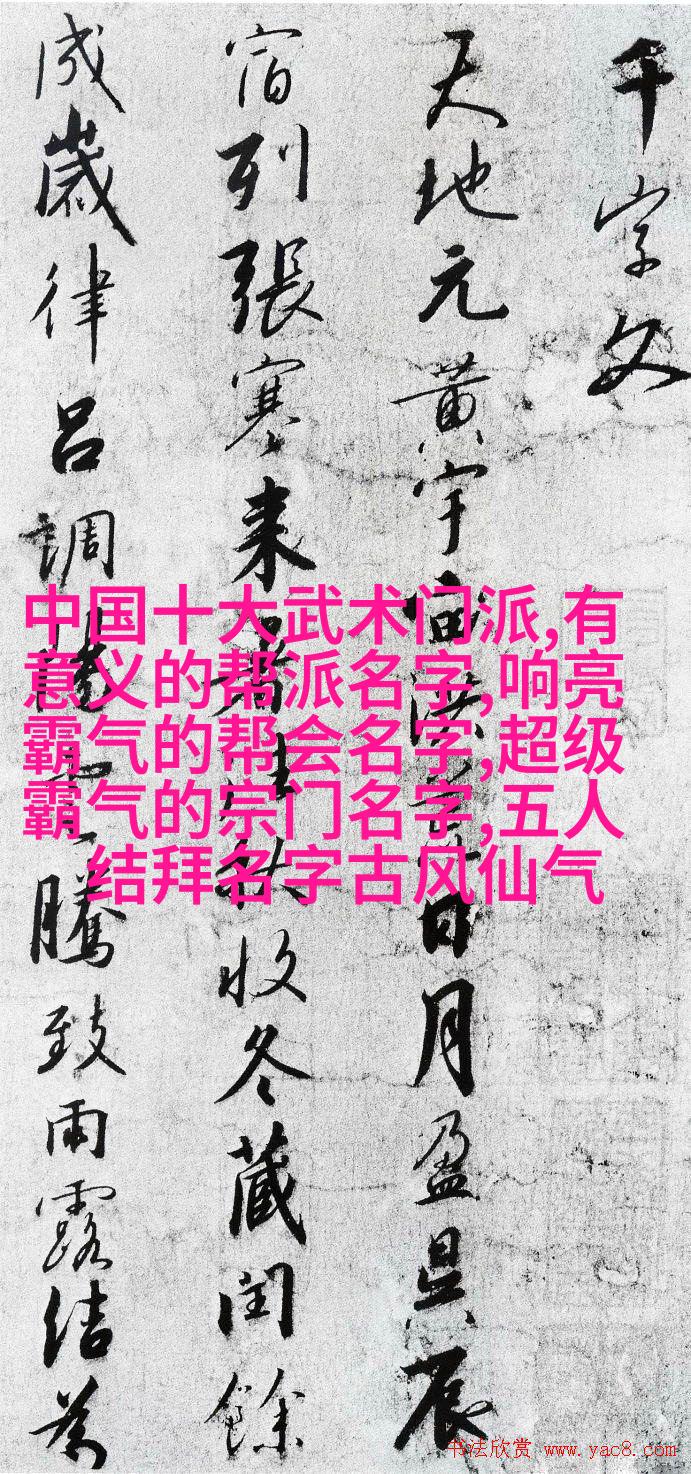 千字文
天地元黄宇宙洪荒日月盈昃辰
宿列張寒来暑往秋收冬藏閏餘
成歲律呂調陽雲騰致雨露結為
中国十大武术门派,有
意义的帮派名字,响亮
霸气的帮会名字,超级
霸气的宗门名字,五人
结拜名字古风仙气
书法欣赏 www.yac8.com